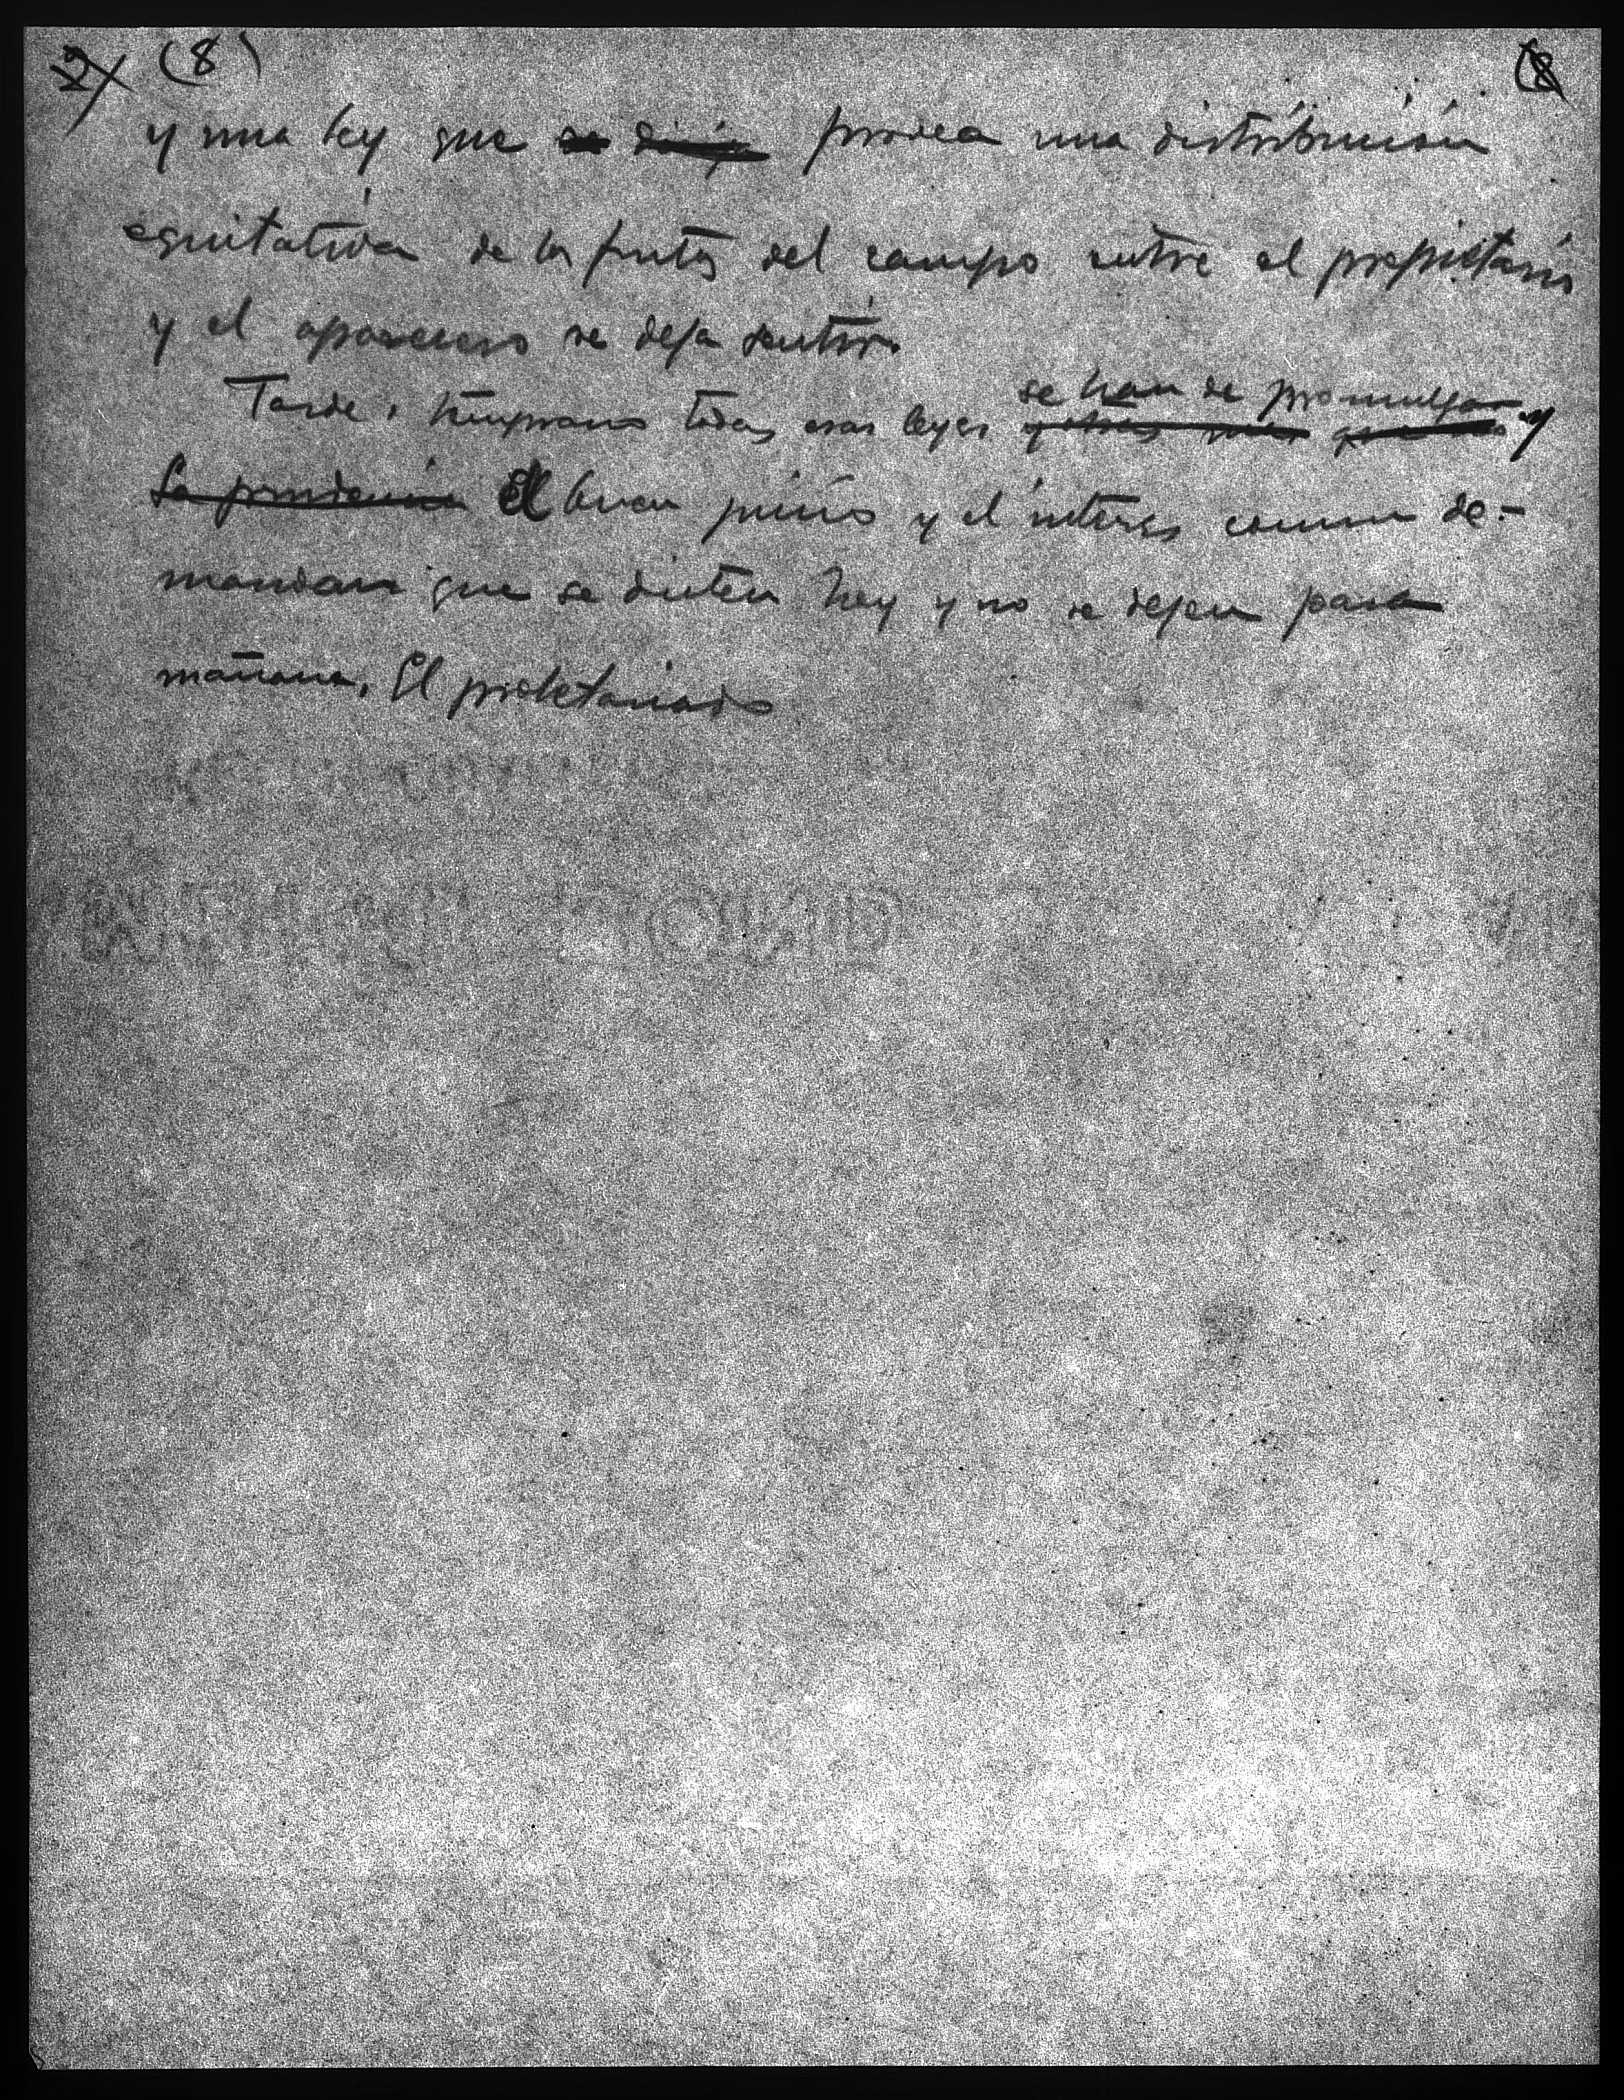 (8)
y una ley que se dirija provea una distribución
equitativa de los frutos del campo entre el propietario
y el aparcero se deja sentir.
se han de promulgar
Tarde o temprano todas esas leyes y otras más que y
La prudencia El buen juicio y el interés comun de-
mandan que se dicten hoy y no se dejen para
mañana. El proletariado